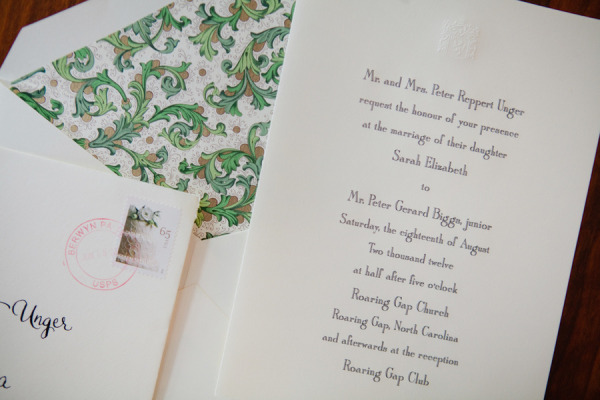 Mr. and Mrs. Peter Reppert Unger
request the honour of your presence
at the marriage of their daughter
Sarah Elizabeth
to
Mr. Peter Gerard Biggs, junior
Saturday, the eighteenth of August
Two thousand twelve
at half after five o'clock
Roaring Gap Church
Roaring Gap, North Carolina
and afterwards at the reception
Roaring Gap Club
65
BERWYN
USPS
Unger
a